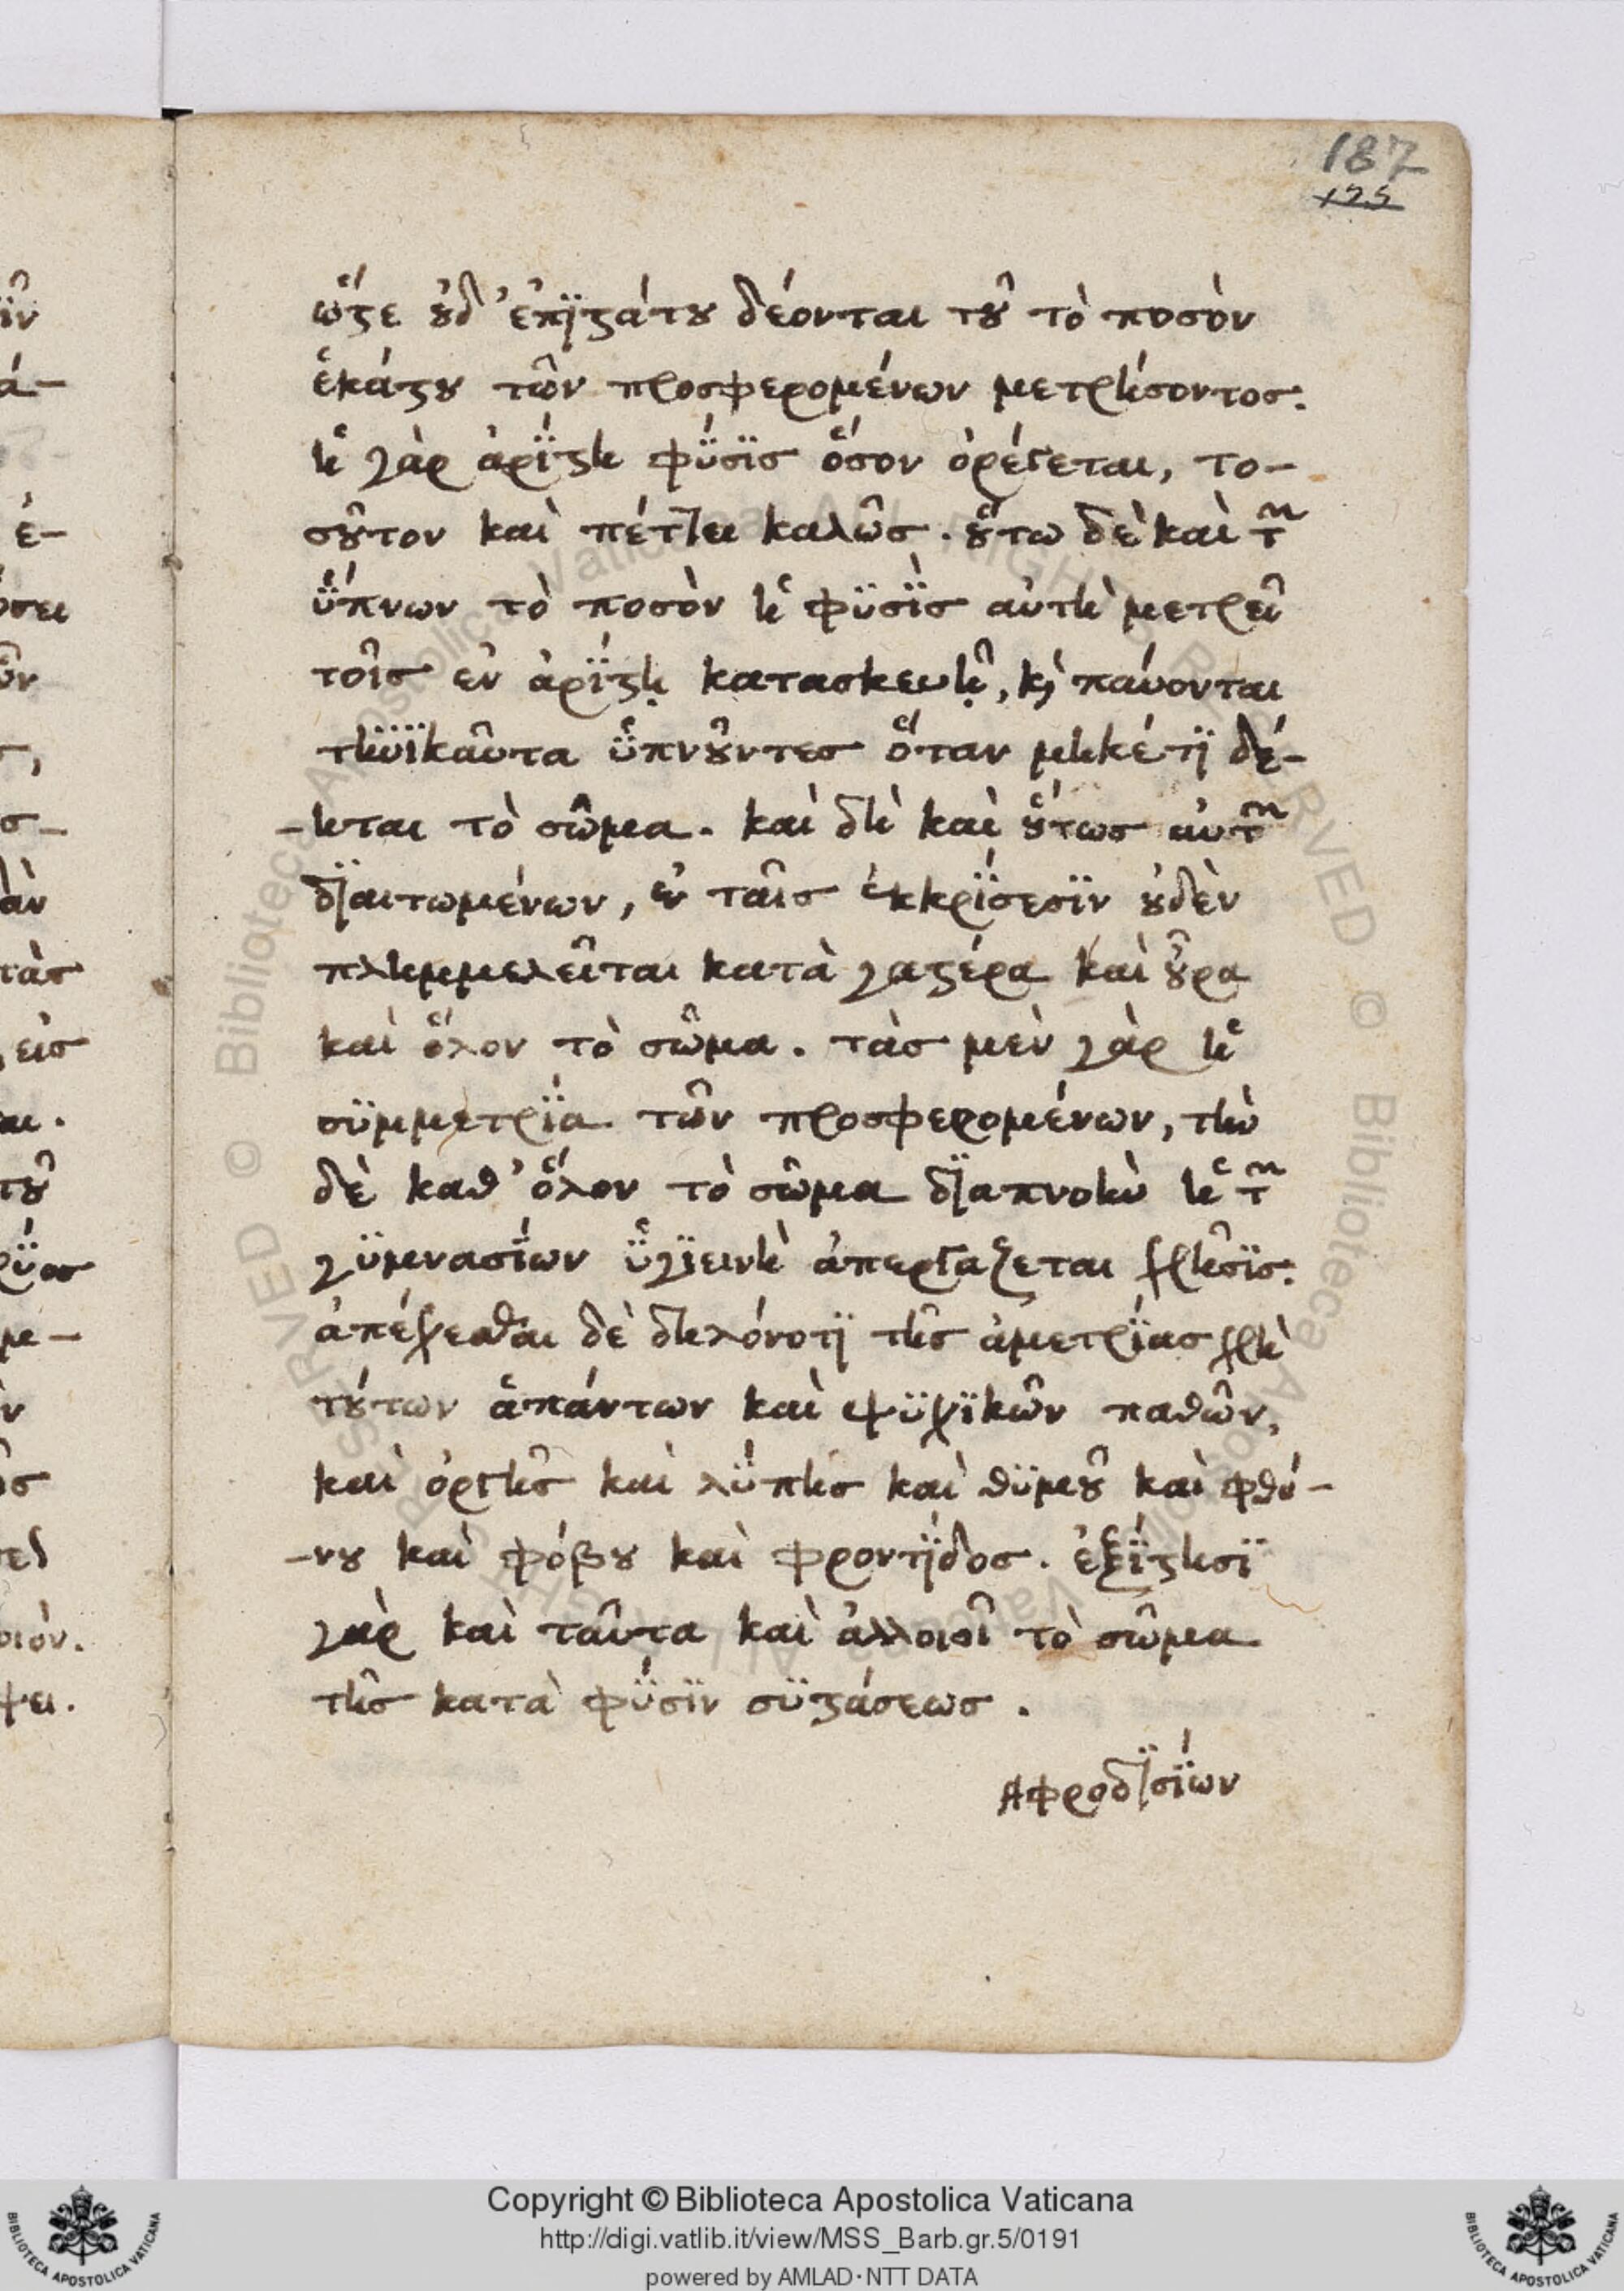 187
125
ὥστε οὐδ' ἐπϊστάτου δέονται τοῦ τὸ ποσὸν
ἑκάστου τῶν προσφερομένων μετρήσοντος.
ἡ γὰρ ἀρΐστη φΰσϊς ὅσον ὀρέγεται, το-
σοῦτον καὶ πέττει καλῶς. οὕτω δὲ καὶ τῶν
ὕπνων τὸ ποσὸν ἡ φΰσϊς αὐτὴ μετρεῖ
τοῖς ἐν ἀρΐστῃ κατασκευῇ, καὶ παύονται
τηνϊκαῦτα ὑπνοῦντες ὅταν μηκέτϊ δέ-
-ηται τὸ σῶμα. καὶ δὴ καὶ οὕτως αὐτῶν
δϊαιτωμένων, ἐν ταῖς ἐκκρΐσεσϊν οὐδὲν
πλημμελεῖται κατὰ γαστέρα καὶ οὖρα
καὶ ὅλον τὸ σῶμα. τὰς μὲν γὰρ ἡ
σϋμμετρΐα τῶν προσφερομένων, τὴν
δὲ καθ' ὅλον τὸ σῶμα δϊαπνοὴν ἡ τῶν
γϋμνασΐων ὑγϊεινὴ ἀπεργάζεται χρῆσϊς.
ἀπέχεσθαι δὲ δηλόνοτϊ τῆς ἀμετρΐας χρὴ
τούτων ἁπάντων καὶ ψϋχϊκῶν παθῶν,
καὶ ὀργῆς καὶ λΰπης καὶ θϋμοῦ καὶ φθό-
-νου καὶ φόβου καὶ φροντΐδος. ἐξΐστησϊ
γὰρ καὶ ταῦτα καὶ ἀλλοιοῖ τὸ σῶμα
τῆς κατὰ φΰσϊν σϋστάσεως.
Ἀφροδϊσΐων
Copyright © Biblioteca Apostolica Vaticana
http://digi.vatlib.it/view/MSS_Barb.gr.5/0191
powered by AMLAD·NTT DATA